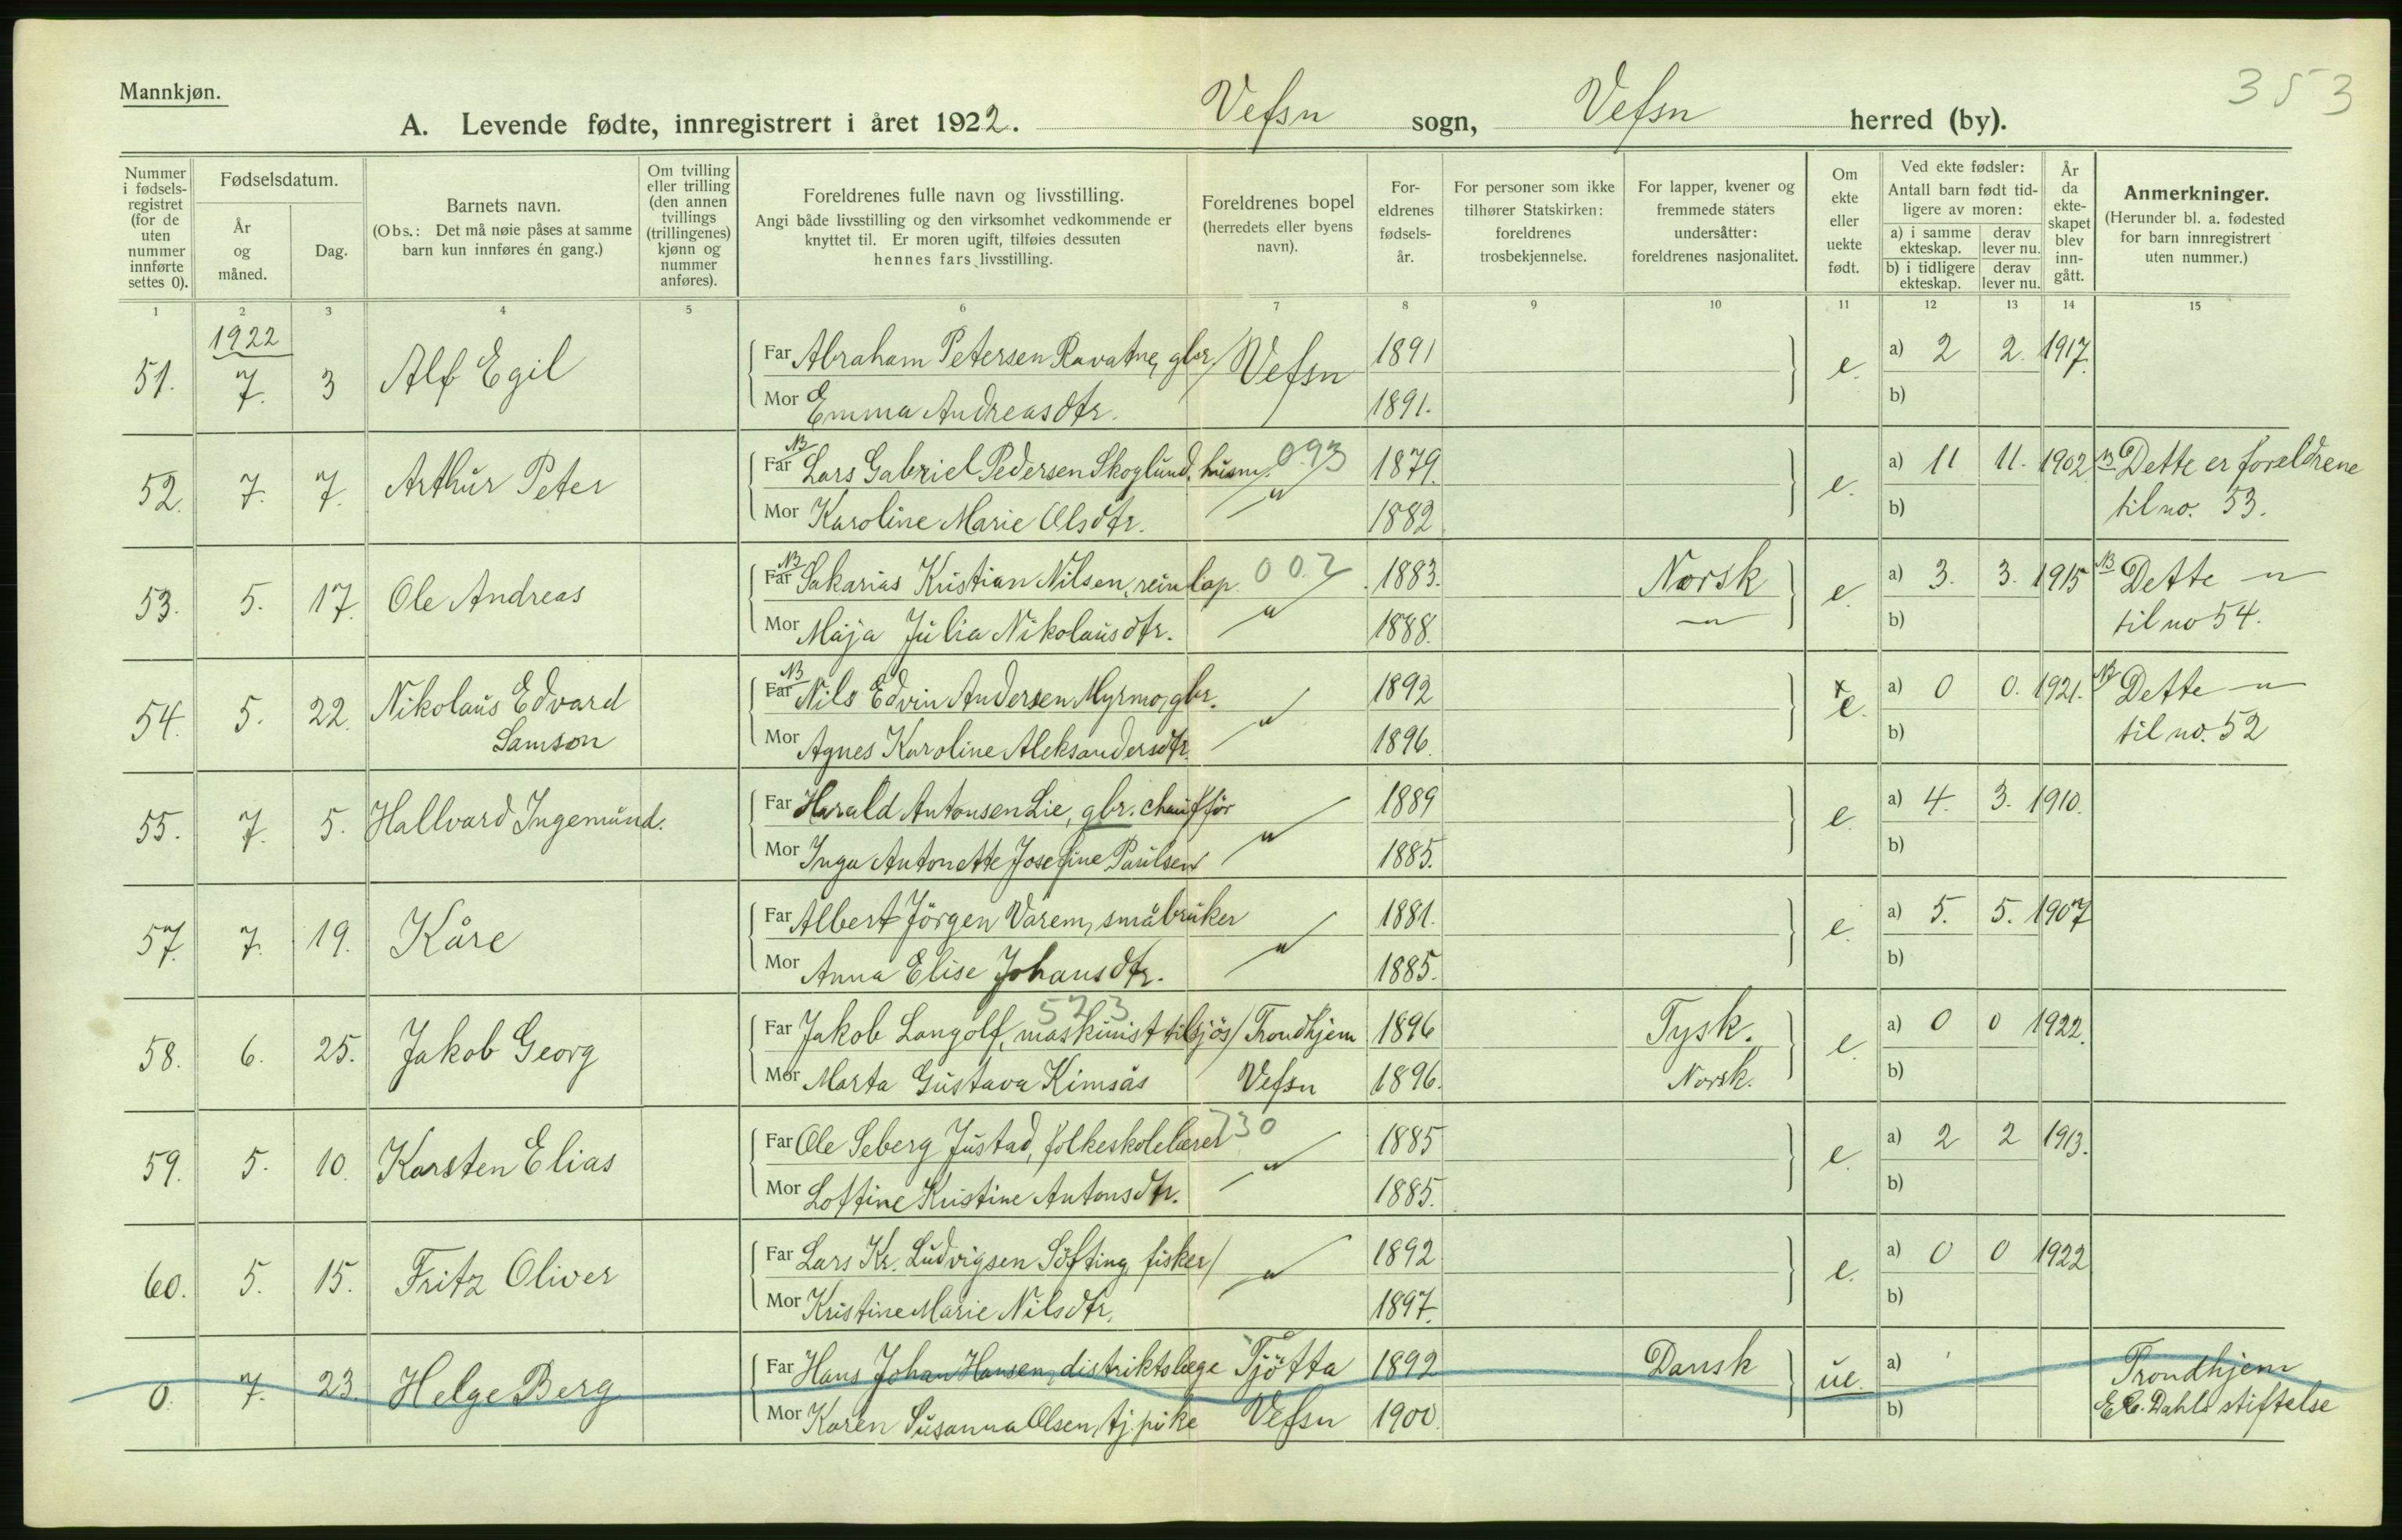 353
Mannkjøn.
A. Levende fødte, innregistrert i året 1922. Vefsn sogn, Vefsn herred (by).
Nummer i fødsels-registret (for de uten nummer innførte settes 0).
Fødselsdatum.
År og måned.
Dag.
Barnets navn.
(Obs.: Det må nøie påses at samme barn kun innføres én gang.)
Om tvilling eller trilling (den annen tvillings (trillingenes) kjønn og nummer anføres).
Foreldrenes fulle navn og livsstilling.
Angi både livsstilling og den virksomhet vedkommende er knyttet til. Er moren ugift, tilføies dessuten hennes fars livsstilling.
Foreldrenes bopel (herredets eller byens navn).
For-eldrenes fødsels-år.
For personer som ikke tilhører Statskirken: foreldrenes trosbekjennelse.
For lapper, kvener og fremmede staters undersåtter: foreldrenes nasjonalitet.
Om ekte eller uekte født.
Ved ekte fødsler:
Antall barn født tid-ligere av moren:
a) i samme ekteskap.
derav lever nu.
b) i tidligere ekteskap.
derav lever nu.
År da ekte-skapet blev inn-gått.
Anmerkninger.
(Herunder bl. a. fødested for barn innregistrert uten nummer.)
1 2 3 4 5 6 7 8 9 10 11 12 13 14 15
1922
51. 7. 3 Alf Egil
Far Abraham Petersen Ravatne, gbr. Vefsn 1891 e. a) 2 2. 1917.
Mor Emma Andreasdtr. 1891. b)
52. 7. 7. Arthur Peter
NB Far Lars Gabriel Pedersen Skoglund, husm. 093 1879. e. a) 11 11. 1902 NB Dette er foreldrene
Mor Karoline Marie Olsdtr. " 1882. b) til no. 53.
53. 5. 17. Ole Andreas
NB Far Sakarias Kristian Nilsen, reinlap. 002 1883. Norsk e. a) 3. 3. 1915 NB Dette — " —
Mor Maja Julia Nikolausdtr. " 1888. — " — b) til no 54.
54. 5. 22. Nikolaus Edvard Samson
NB Far Nils Edvin Andersen Myrmo, gbr. 1892 x e. a) 0 0. 1921. NB Dette — " —
Mor Agnes Karoline Aleksandersdtr. " 1896. b) til no. 52
55. 7. 5. Hallvard Ingemund.
Far Harald Antonsen Lie, gbr. chauffør 1889 e. a) 4. 3. 1910.
Mor Inga Antonette Josefine Paulsen " 1885. b)
57. 7. 19. Kåre
Far Albert Jörgen Varem, småbruker 1881. e. a) 5. 5. 1907
Mor Anna Elise Johansdtr. " 1885. b)
58. 6. 25. Jakob Georg
523
Far Jakob Langolf, maskinist tilsjös Trondhjem 1896 Tysk. e. a) 0 0 1922.
Mor Marta Gustava Kimsås Vefsn 1896. Norsk. b)
59. 5. 10. Karsten Elias
Far Ole Seberg Justad, folkeskolelærer 730 1885 e. a) 2 2 1913.
Mor Loftine Kristine Antonsdtr. " 1885. b)
60. 5. 15. Fritz Oliver
Far Lars Kr. Ludvigsen Söfting, fisker 1892 e. a) 0 0 1922
Mor Kristine Marie Nilsdtr. " 1897. b)
0. 7. 23. Helge Berg
Far Hans Johan Hansen, distriktslæge Tjötta 1892 Dansk ue. a) Trondhjem
Mor Karen Susanna Olsen, tj. pike Vefsn 1900. b) E.C. Dahls stiftelse